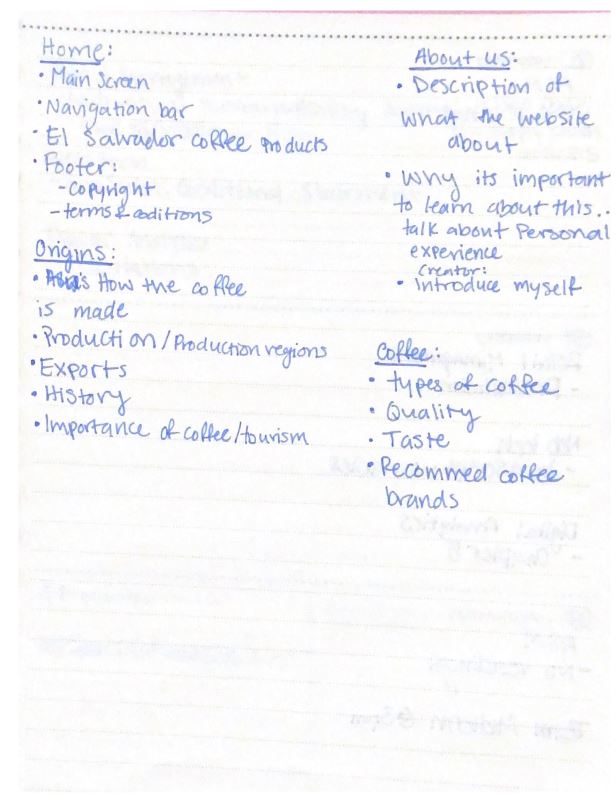 Home:
• Main Screen
• Navigation bar
• El Salvador coffee products
• Footer:
- Copyright
- terms & coditions
Origins:
• How the coffee
is made
• Production/Production regions
• Exports
• History
• Importance of coffee/tourism
About us:
• Description of
what the website
about
• Why its important
to learn about this..
talk about Personal
experience
creator:
• introduce myself
Coffee:
• types of coffee
• Quality
• Taste
• Recommed coffee
brands